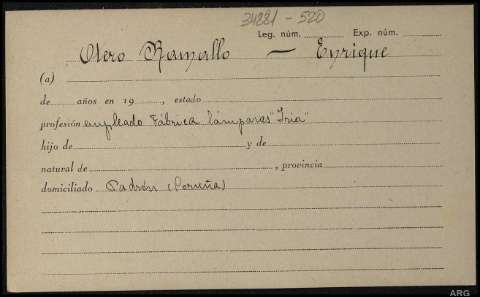 34881 - 520
Leg. núm. Exp. núm.
Otero Ramallo — Enrique
(a)
de años en 19 , estado
profesión empleado Fábrica Lámparas "Iria"
hijo de y de
natural de , provincia
domiciliado Padrón (Coruña)
ARG